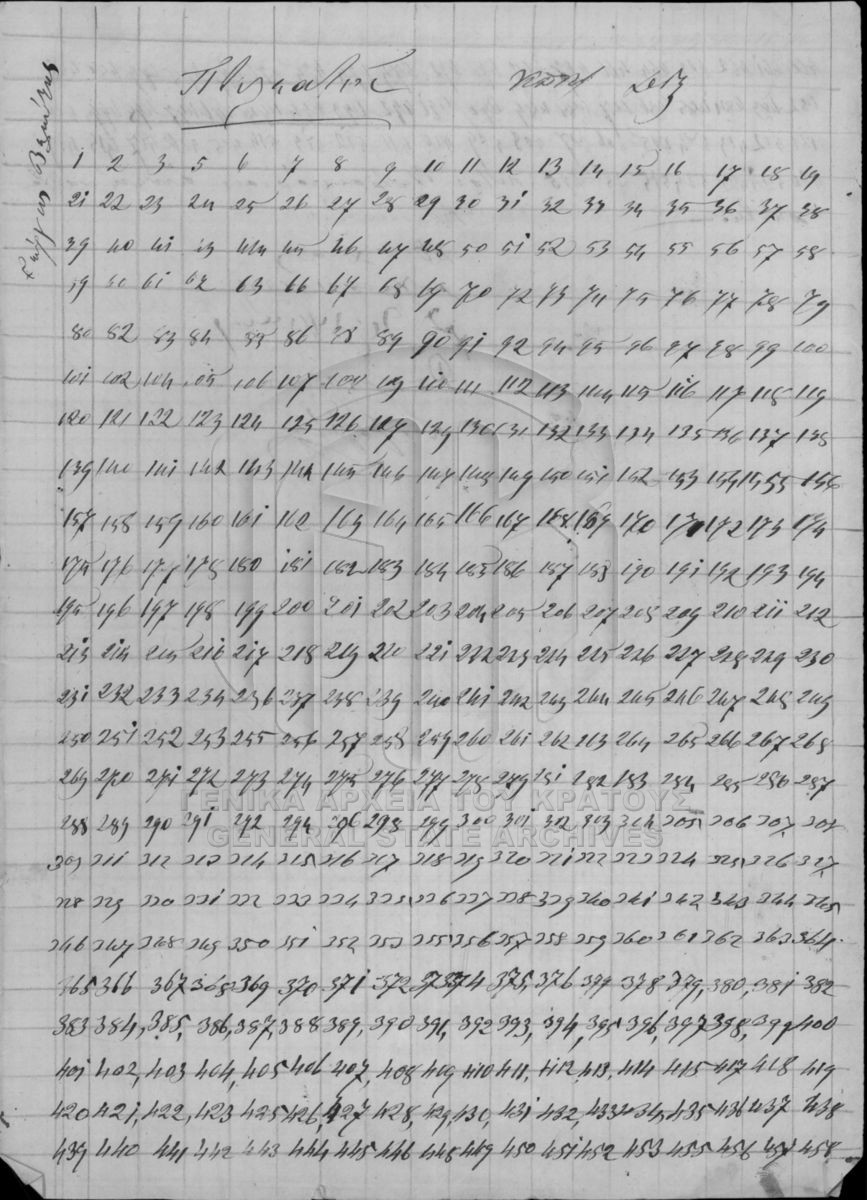 1 2 3 5 6 7 8 9 10 11 12 13 14 15 16 17 18 19
21 22 23 24 25 26 27 28 29 30 31 32 33 34 35 36 37 38
39 40 41 43 44 45 46 47 48 50 51 52 53 54 55 56 57 58
59 60 61 62 63 66 67 68 69 70 72 73 74 75 76 77 78 79
80 82 83 84 85 86 88 89 90 91 92 94 95 96 97 98 99 100
101 102 104 105 106 107 108 109 110 111 112 113 114 115 116 117 118 119
120 121 122 123 124 125 126 127 129 130 131 132 133 134 135 136 137 138
139 140 141 142 143 144 145 146 147 148 149 150 151 152 153 154 155 156
157 158 159 160 161 162 163 164 165 166 167 168 169 170 171 172 173 174
175 176 177 178 180 181 182 183 184 185 186 187 188 190 191 192 193 194
195 196 197 198 199 200 201 202 203 204 205 206 207 208 209 210 211 212
213 214 215 216 217 218 219 220 221 222 223 224 225 226 227 228 229 230
231 232 233 234 236 237 238 239 240 241 242 243 244 245 246 247 248 249
250 251 252 253 255 256 257 258 259 260 261 262 263 264 265 266 267 268
269 270 271 272 273 274 275 276 277 278 279 281 282 283 284 285 286 287
ΓΕΝΙΚΑ ΑΡΧΕΙΑ ΤΟΥ ΚΡΑΤΟΥΣ
288 289 290 291 292 294 296 298 299 300 301 302 303 304 305 306 307 308
GENERAL STATE ARCHIVES
309 311 312 313 314 315 316 317 318 319 320 321 322 323 324 325 326 327
328 329 330 331 332 333 334 335 336 337 338 339 340 341 342 343 344 345
346 347 348 349 350 351 352 353 355 356 357 358 359 360 361 362 363 364
365 366 367 368 369 370 371 372 373 374 375, 376 377 378 379, 380, 381 382
383 384, 385, 386, 387, 388 389, 390 391, 392 393, 394, 395 396, 397 398, 399 400
401 402, 403 404, 405 406 407, 408 409 410 411, 412 413, 414 415 417 418 419
420 421, 422, 423 425 426, 427 428, 429, 430, 431 432, 433 434, 435 436 437 438
439 440 441 442 443 444 445 446 448 449 450 451 452 453 455 456 457 458